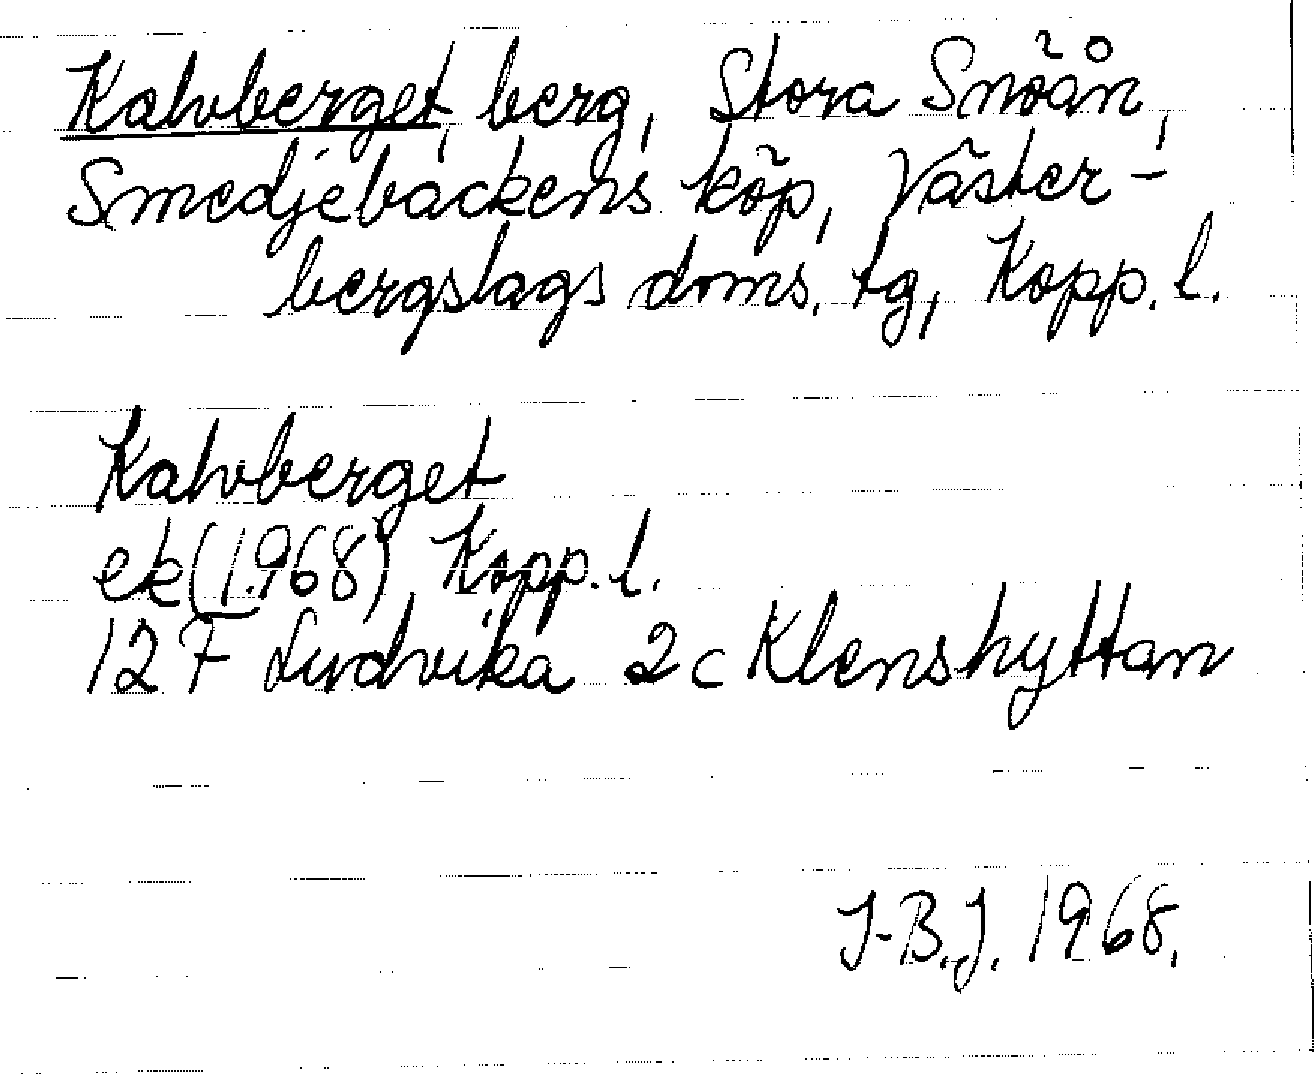 Kalvberget, berg, Stora Snöån,
Smedjebackens köp, Väster-
bergslags doms. tg, Kopp. l.
Kalvberget
ek (1968) Kopp. l.
12 F Ludvika 2c Klenshyttan
I-B.J. 1968.